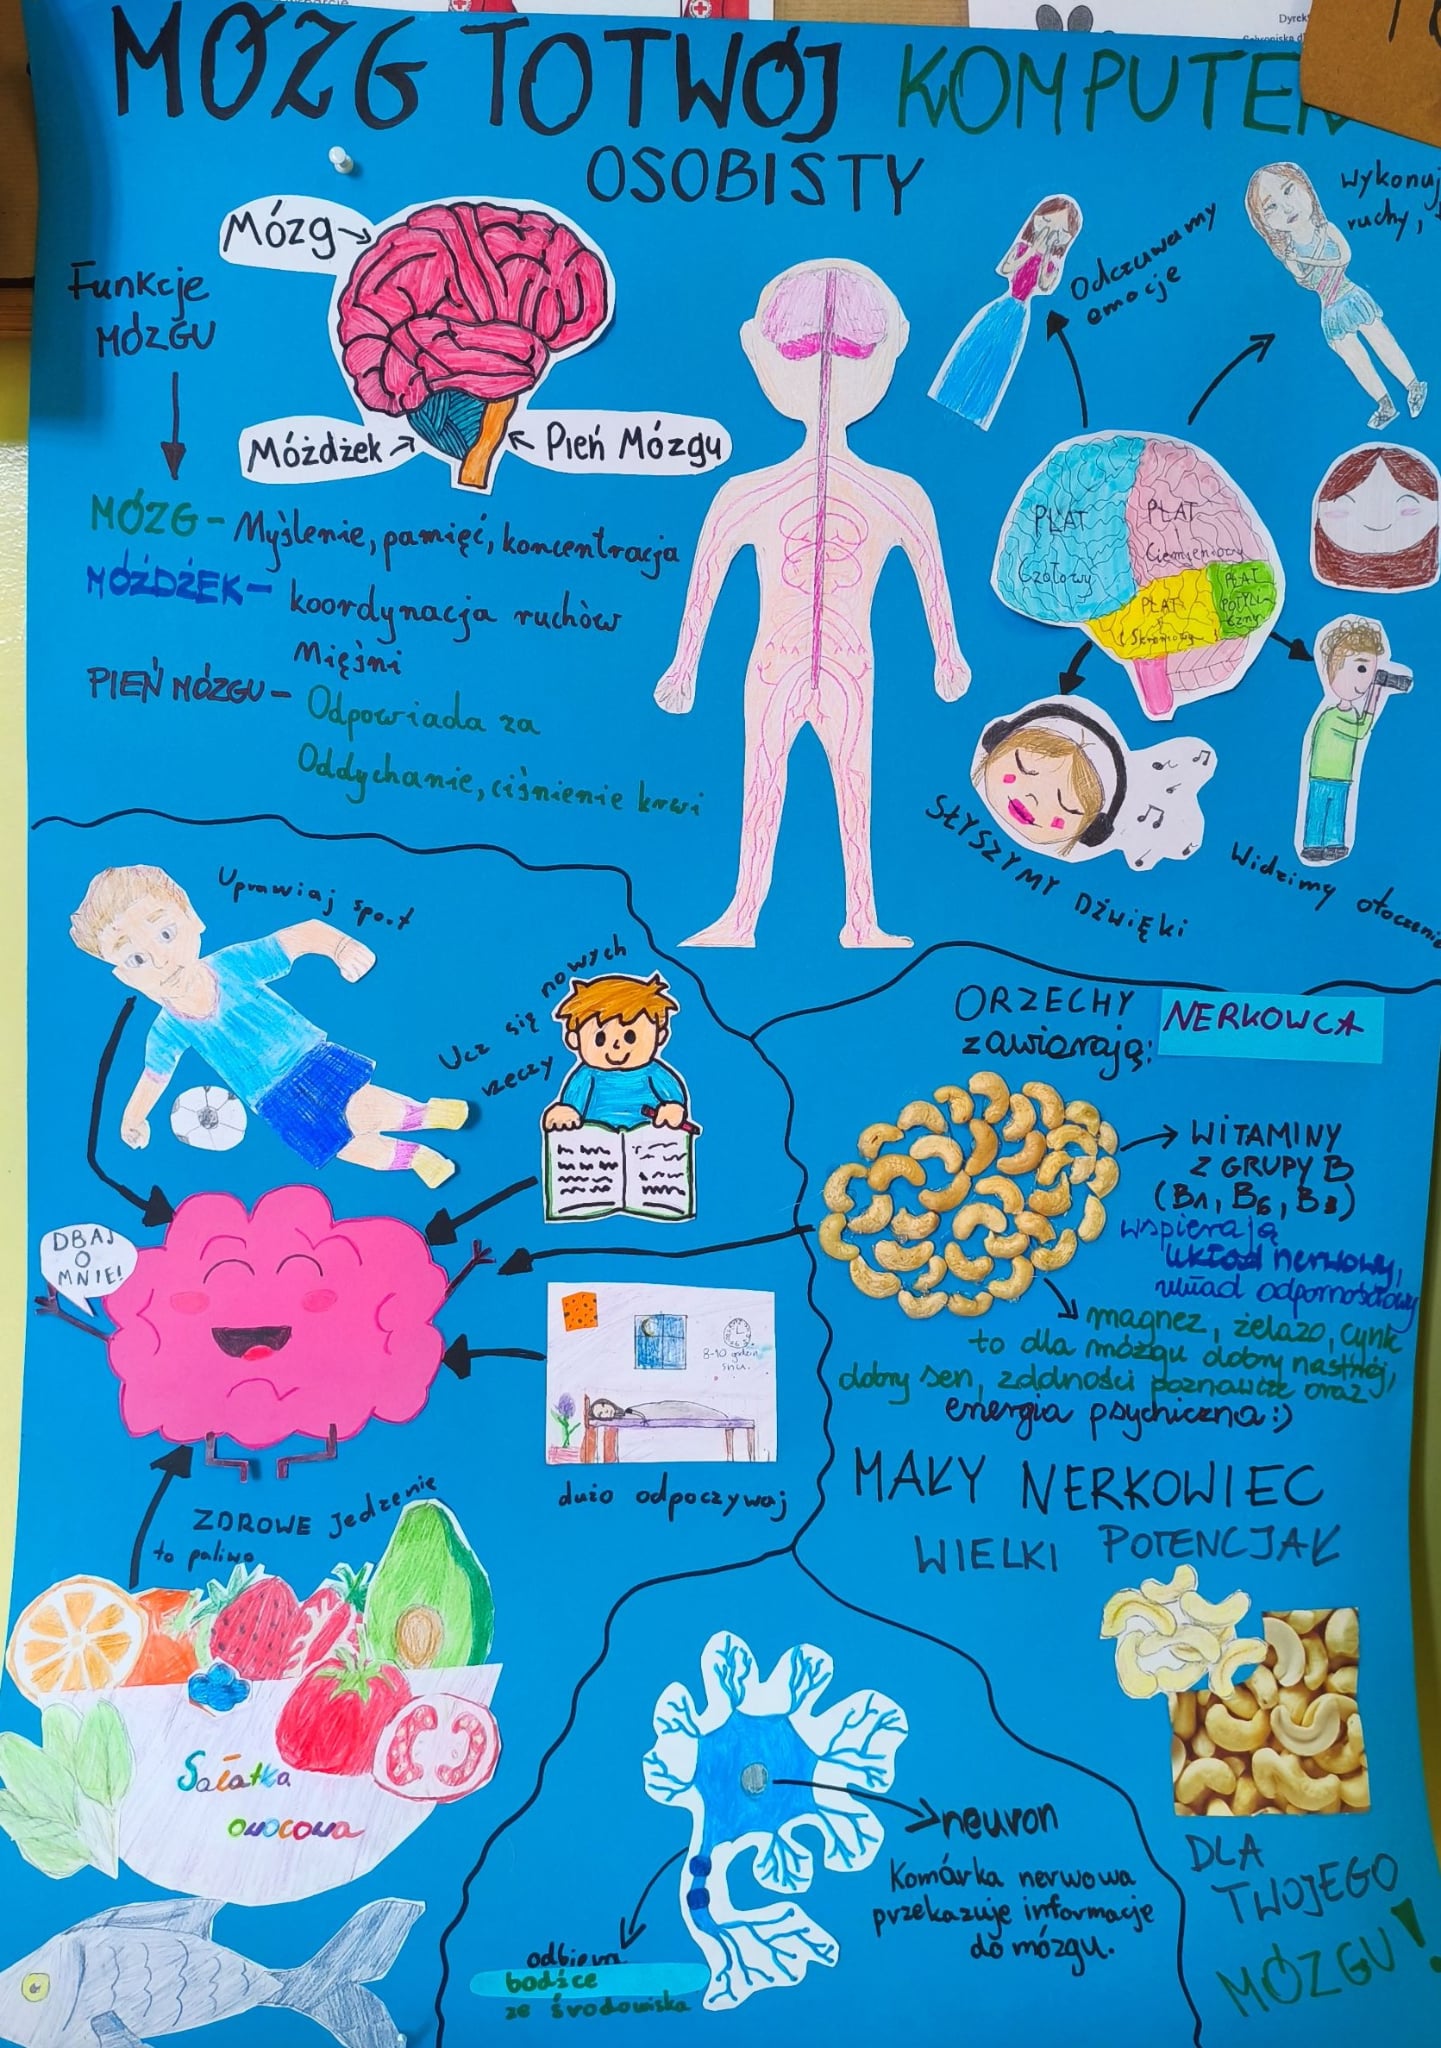 Dyrek
MÓZG TO TWÓJ KOMPUTER
OSOBISTY
Mózg
Funkcje
MÓZGU
Móżdżek
Pień Mózgu
MÓZG - Myślenie, pamięć, koncentracja
MÓŻDŻEK - koordynacja ruchów
Mięśni
PIEŃ MÓZGU - Odpowiada za
Oddychanie, ciśnienie krwi
Odczuwamy
emocje
wykonuj
ruchy,
PŁAT
Czołowy
PŁAT
Ciemieniowy
PŁAT
Skroniowy
PŁAT
POTYLI-
CZNY
SŁYSZYMY DŹWIĘKI
Widzimy otoczenie
Uprawiaj sport
Ucz się nowych
rzeczy
DBAJ
O
MNIE!
8-10 godzin
snu.
dużo odpoczywaj
ZDROWE jedzenie
to paliwo
Sałatka
owocowa
ORZECHY NERKOWCA
zawierają:
WITAMINY
Z GRUPY B
(B1, B6, B3)
wspierają
układ nerwowy,
układ odpornościowy
magnez, żelazo, cynk
to dla mózgu dobry nastrój,
dobry sen, zdolności poznawcze oraz
energia psychiczna :)
MAŁY NERKOWIEC
WIELKI POTENCJAŁ
DLA
TWOJEGO
MÓZGU!
neuron
Komórka nerwowa
przekazuje informacje
do mózgu.
odbiera
bodźce
ze środowiska